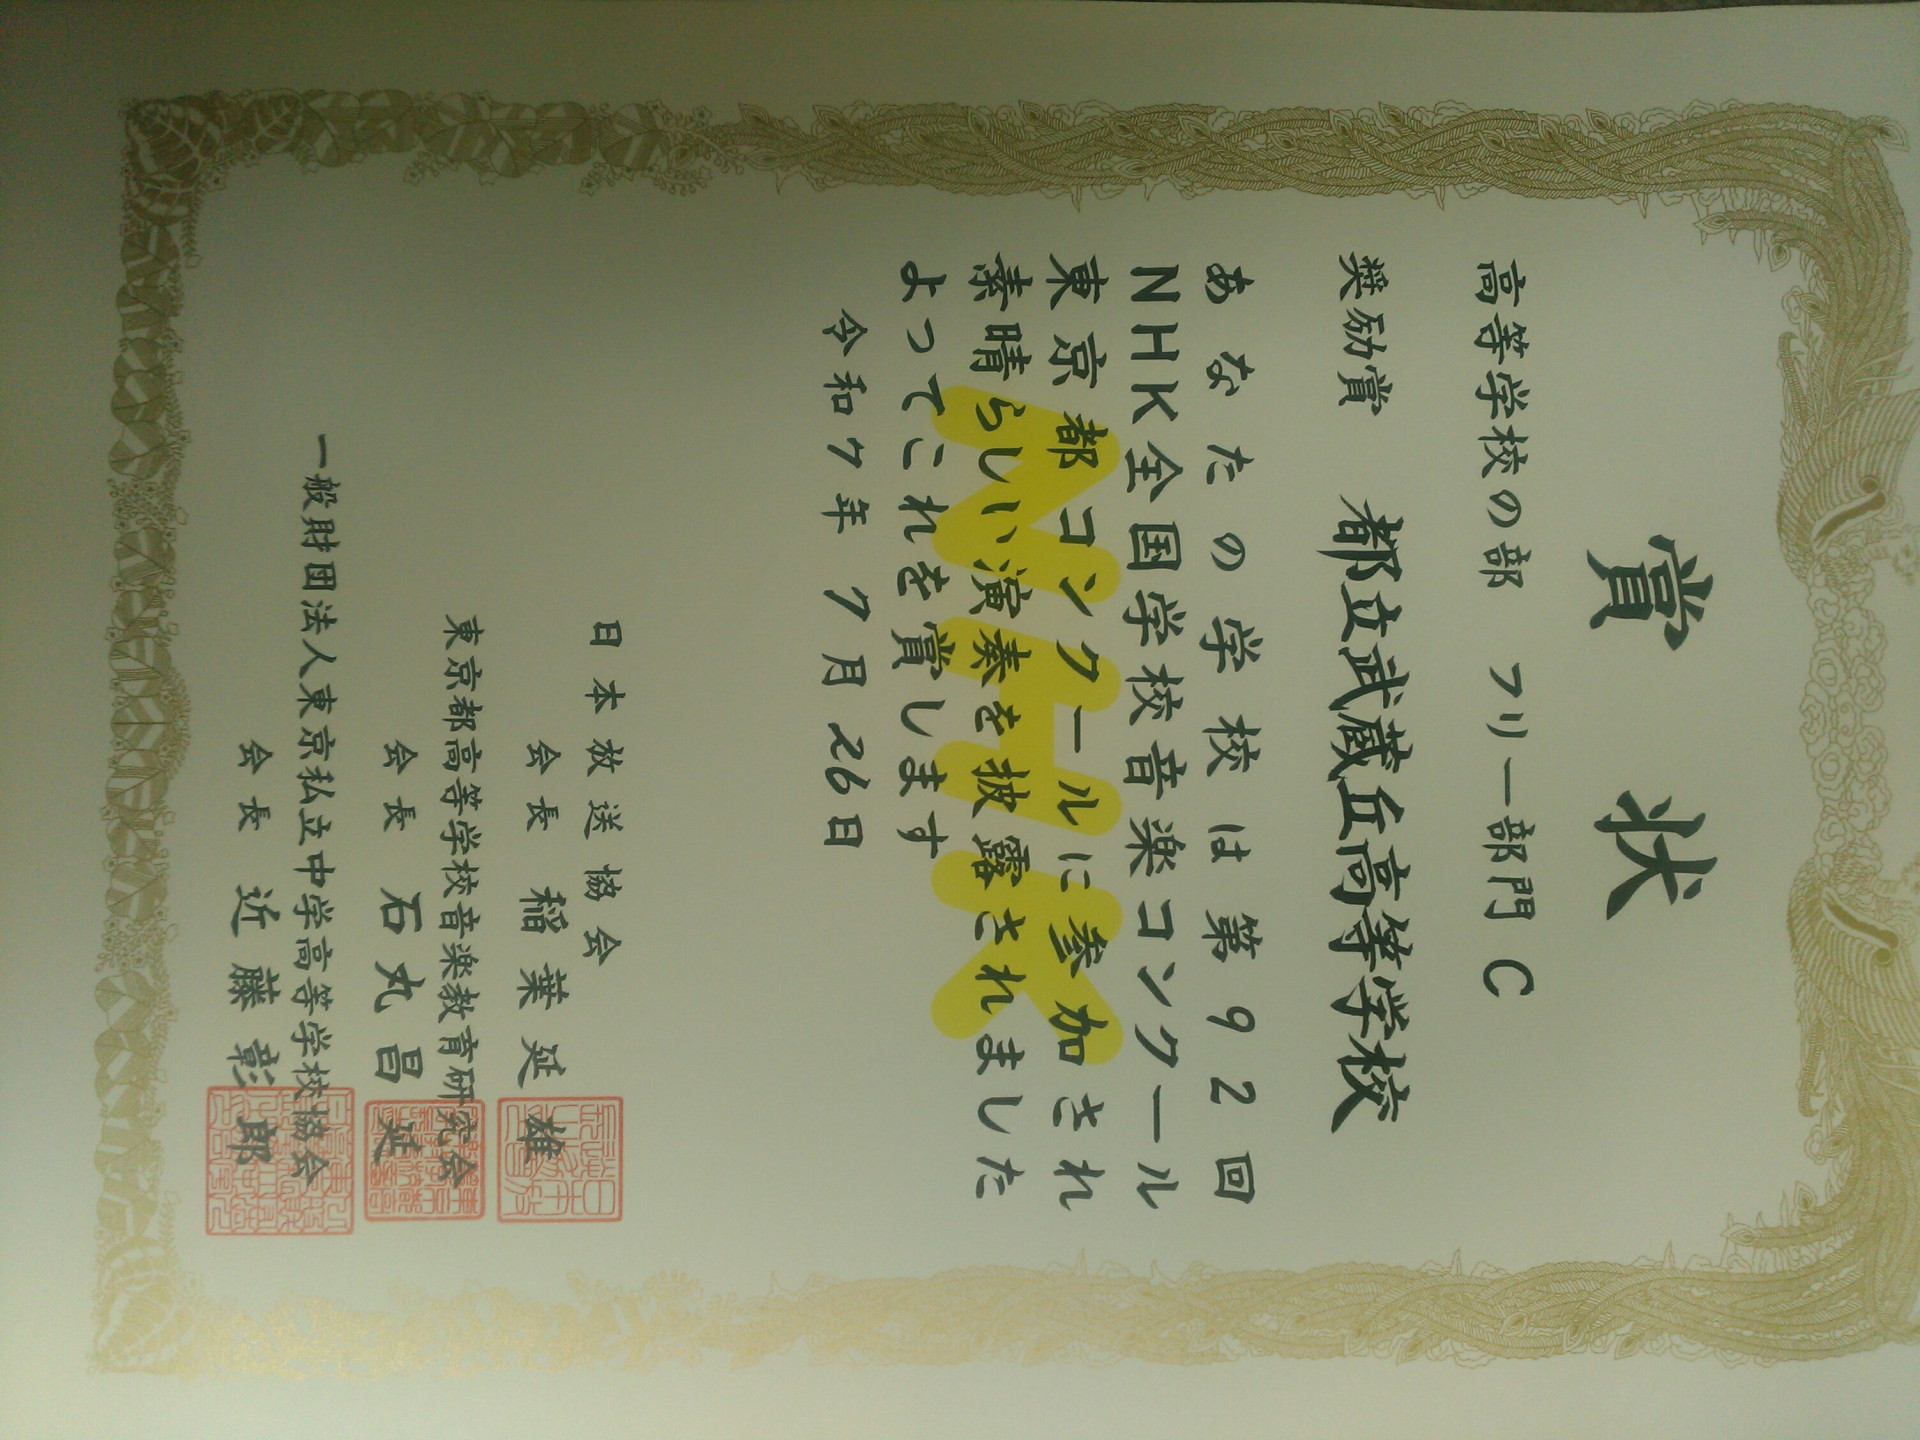 賞状
高等学校の部 フリー部門 C
奨励賞 都立武蔵丘高等学校
あなたの学校は第92回
NHK全国学校音楽コンクール
東京都コンクールに参加され
素晴らしい演奏を披露されました
よってこれを賞します
令和7年7月26日
NHK
日本放送協会
会長 稲葉延雄
東京都高等学校音楽教育研究会
会長 石丸昌延
一般財団法人東京私立中学高等学校協会
会長 近藤彰郎